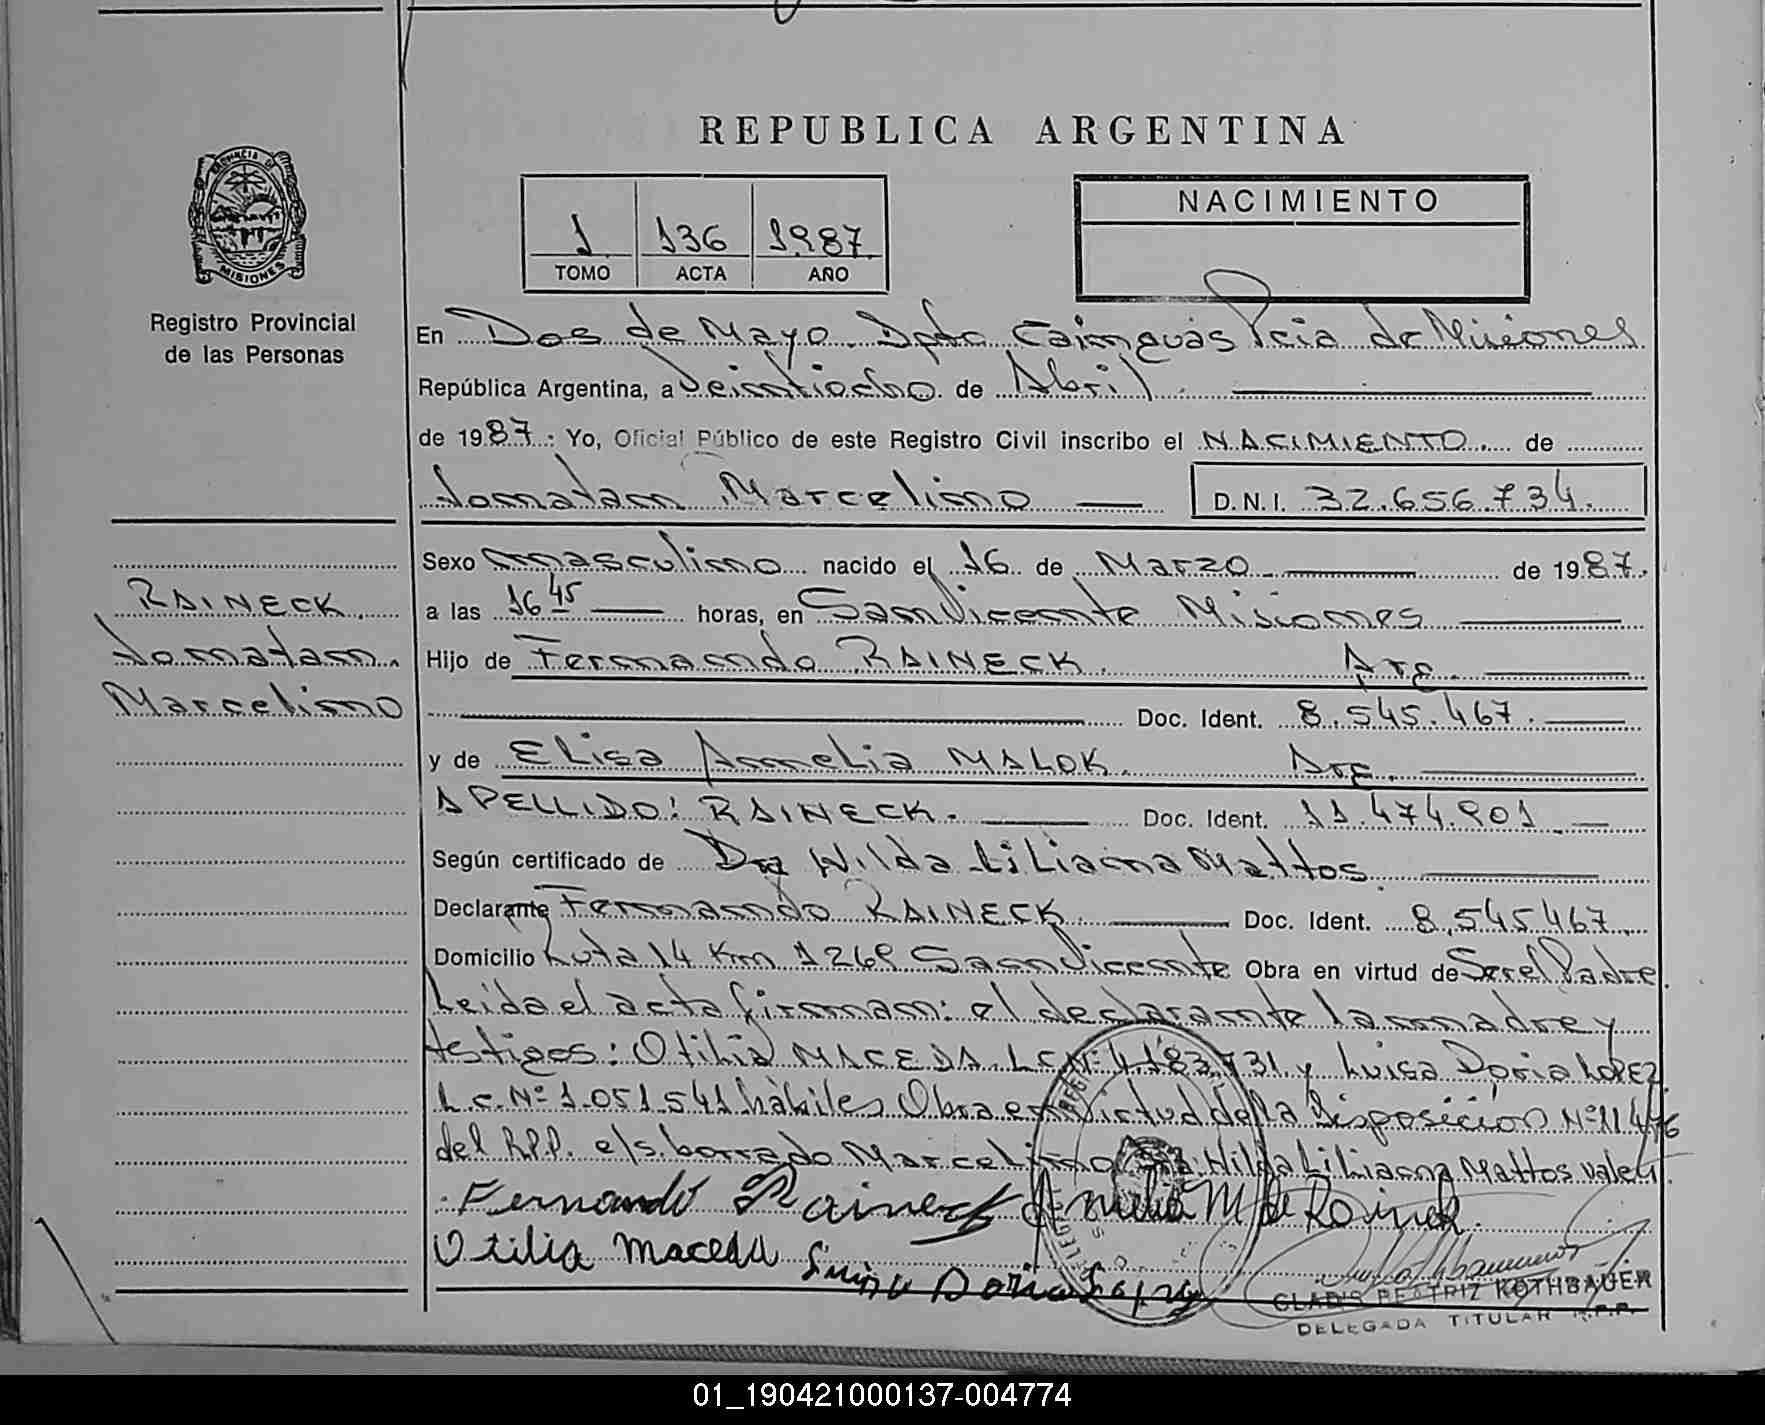 REPUBLICA ARGENTINA
PROVINCIA DE
MISIONES
Registro Provincial
de las Personas
1 136 1987
TOMO ACTA AÑO
NACIMIENTO
En Dos de Mayo Dpto Cainguás Pcia de Misiones
República Argentina, a veintiocho de Abril
de 1987 : Yo, Oficial Público de este Registro Civil inscribo el NACIMIENTO de
Jonatan Marcelino D.N.I. 32.656.734.
RAINECK
Jonatan
Marcelino
Sexo masculino nacido el 16 de Marzo de 1987.
a las 16 45 horas, en San Vicente Misiones
Hijo de Fernando RAINECK. Arg.
Doc. Ident. 8.545.467.
y de Elisa Amelia MALOK. Arg.
APELLIDO: RAINECK. Doc. Ident. 11.474.901
Según certificado de Dra Wilda Liliana Mattos.
Declarante Fernando RAINECK. Doc. Ident. 8.545467.
Domicilio Ruta 14 Km 1269 San Vicente Obra en virtud de Ser el Padre.
Leida el acta firman: el declarante la madre y
testigos: Otilia MACEDA L.C Nº 4.183.731 y Luisa Doria LOPEZ
L.C. Nº 1.051.541 hábiles Obra en Virtud de la Disposición Nº 11476
del R.P.P. e/s. borrado Marcelino Hilda Liliana Mattos Valen.
Fernando Raineck Amelia M de Raineck
Otilia Maceda Luisa Doria Lopez
GLADIS BEATRIZ KOTHBAUER
DELEGADA TITULAR R.P.P.
01_190421000137-004774